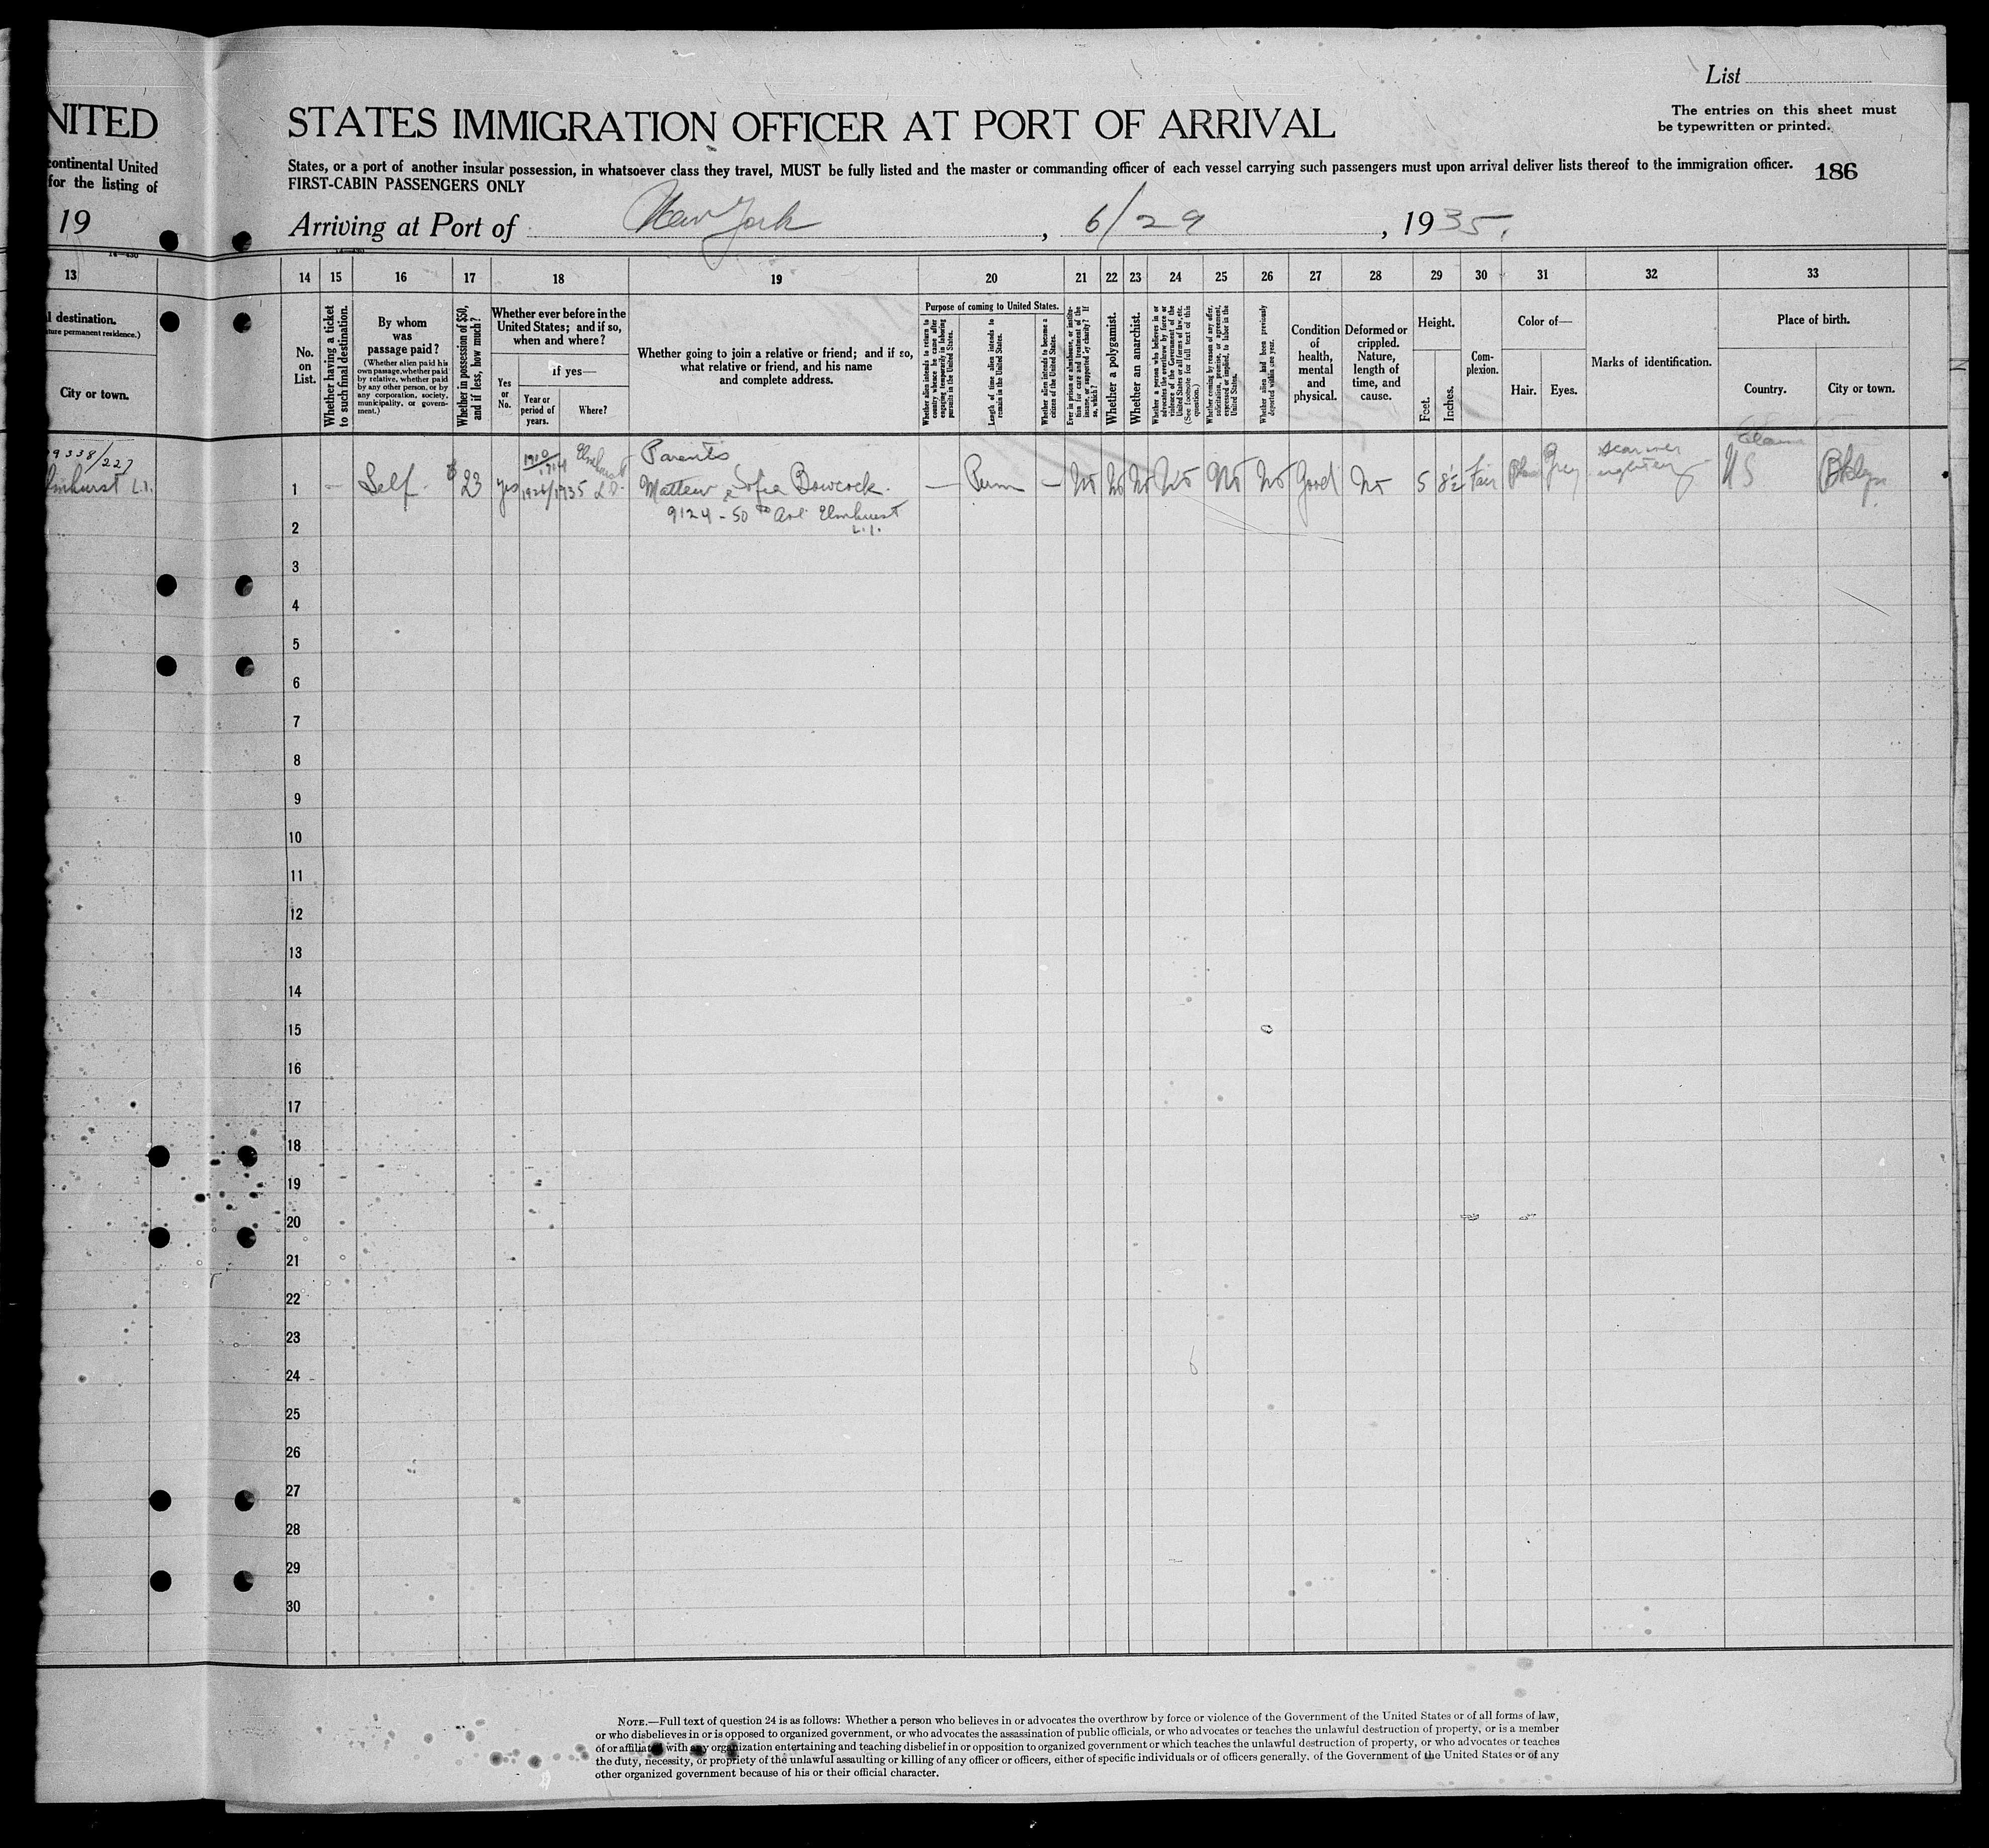 List
NITED STATES IMMIGRATION OFFICER AT PORT OF ARRIVAL
The entries on this sheet must
be typewritten or printed.
continental United
for the listing of
States, or a port of another insular possession, in whatsoever class they travel, MUST be fully listed and the master or commanding officer of each vessel carrying such passengers must upon arrival deliver lists thereof to the immigration officer.
186
FIRST-CABIN PASSENGERS ONLY
19
Arriving at Port of New York, 6/29, 1935.
13 14 15 16 17 18 19 20 21 22 23 24 25 26 27 28 29 30 31 32 33
l destination.
ture permanent residence.)
City or town.
No.
on
List.
Whether having a ticket
to such final destination.
By whom
was
passage paid?
(Whether alien paid his
own passage, whether paid
by relative, whether paid
by any other person, or by
any corporation, society,
municipality, or govern-
ment.)
Whether in possession of $50,
and if less, how much?
Whether ever before in the
United States; and if so,
when and where?
Yes
or
No.
If yes—
Year or
period of
years.
Where?
Whether going to join a relative or friend; and if so,
what relative or friend, and his name
and complete address.
Purpose of coming to United States.
Whether alien intends to return to
country whence he came after
engaging temporarily in laboring
pursuits in the United States.
Length of time alien intends to
remain in the United States.
Whether alien intends to become a
citizen of the United States.
Ever in prison or almshouse, or institu-
tion for care and treatment of the
insane, or supported by charity? If
so, which?
Whether a polygamist.
Whether an anarchist.
Whether a person who believes in or
advocates the overthrow by force or
violence of the Government of the
United States or all forms of law, etc.
(See footnote for full text of this
question.)
Whether coming by reason of any offer,
solicitation, promise, or agreement,
expressed or implied, to labor in the
United States.
Whether alien had been previously
deported within one year.
Condition
of
health,
mental
and
physical.
Deformed or
crippled.
Nature,
length of
time, and
cause.
Height.
Feet.
Inches.
Com-
plexion.
Color of—
Hair.
Eyes.
Marks of identification.
Place of birth.
Country.
City or town.
9338/227
Elmhurst L.I.
1 — Self. $23 yes 1910/1914 Elmhurst
1926/1935 L.I.
Parents
Mattew & Sofia Bowcock.
9124 - 50th Ave Elmhurst
L.I.
— Perm — No No No No No No Good No 5 8½ Fair Grey
US Bklyn
2
3
4
5
6
7
8
9
10
11
12
13
14
15
16
17
18
19
20
21
22
23
24
25
26
27
28
29
30
NOTE.—Full text of question 24 is as follows: Whether a person who believes in or advocates the overthrow by force or violence of the Government of the United States or of all forms of law,
or who disbelieves in or is opposed to organized government, or who advocates the assassination of public officials, or who advocates or teaches the unlawful destruction of property, or is a member
of or affiliated with any organization entertaining and teaching disbelief in or opposition to organized government or which teaches the unlawful destruction of property, or who advocates or teaches
the duty, necessity, or propriety of the unlawful assaulting or killing of any officer or officers, either of specific individuals or of officers generally, of the Government of the United States or of any
other organized government because of his or their official character.